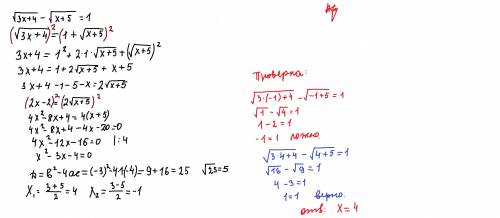 √3x+4 - √x+5 = 1
(√3x+4)² = (1 + √x+5)²
3x+4 = 1² + 2·1·√x+5 + (√x+5)²
3x+4 = 1 + 2√x+5 + x+5
3x+4-1-5-x = 2√x+5
(2x-2)² = (2√x+5)²
4x²-8x+4 = 4(x+5)
4x²-8x+4-4x-20=0
4x²-12x-16=0 |:4
x²-3x-4=0
D = b²-4ac = (-3)²-4·1·(-4) = 9+16 = 25 √25=5
x₁ = 3+5/2 = 4 x₂ = 3-5/2 = -1
Проверка:
√3·(-1)+4 - √-1+5 = 1
√1 - √4 = 1
1-2=1
-1=1 ложно
√3·4+4 - √4+5 = 1
√16 - √9 = 1
4-3=1
1=1 верно.
отв: x=4